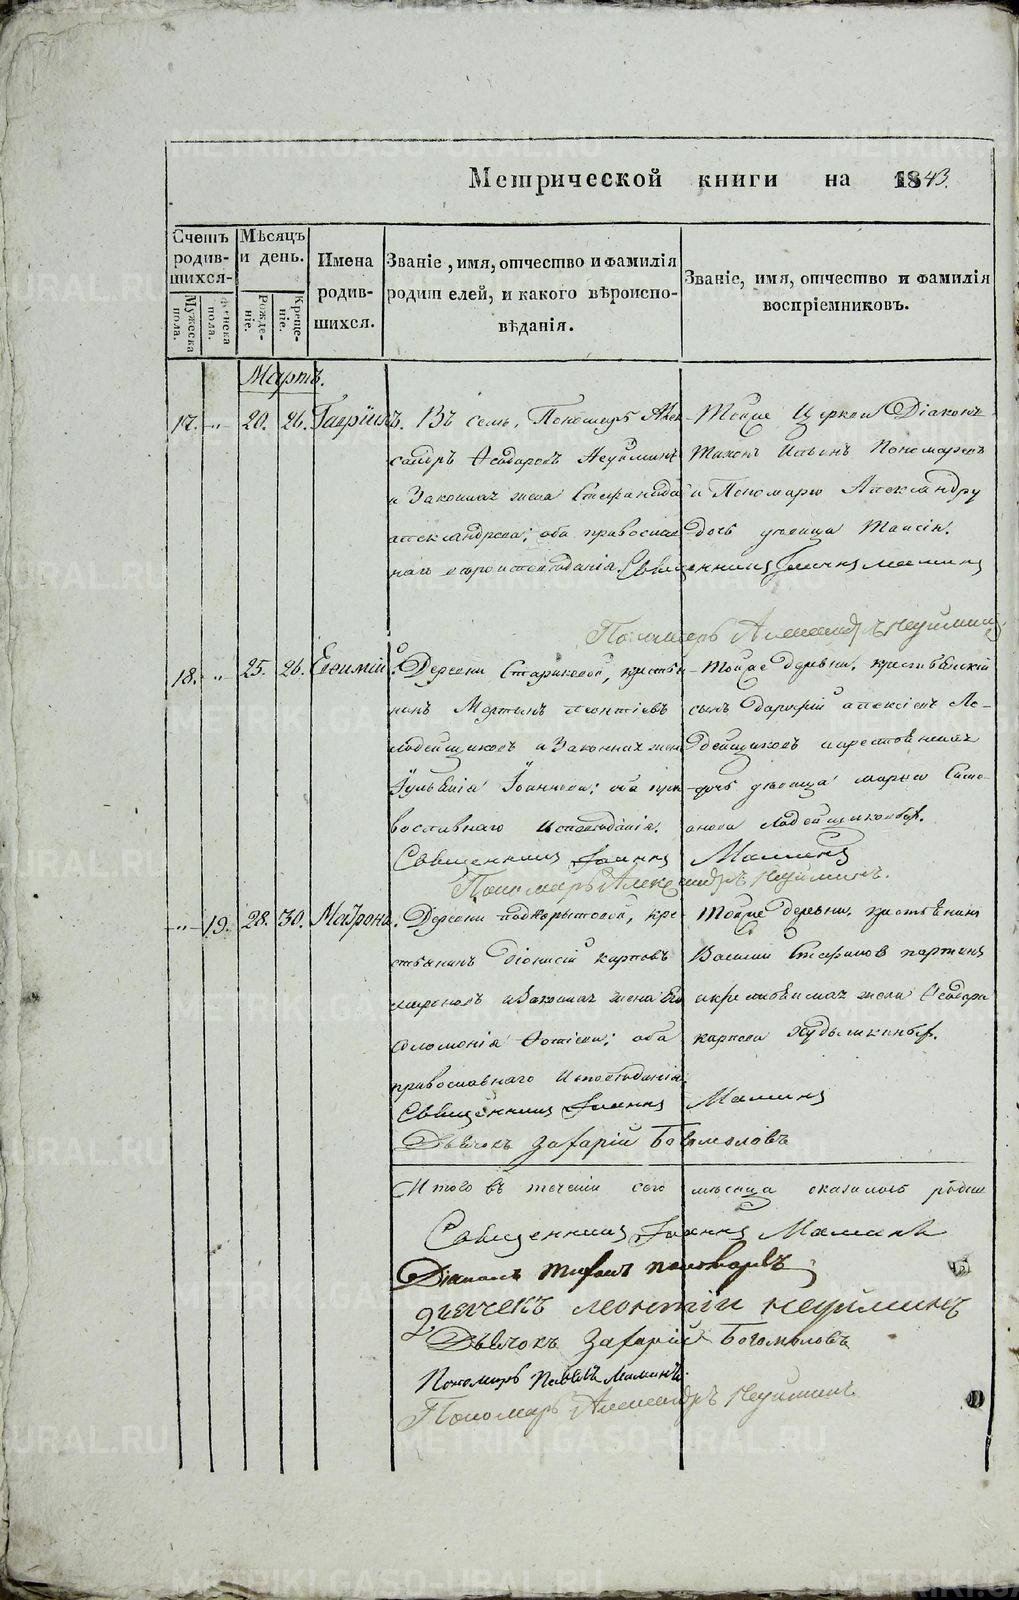 Метрической книги на 1843.
Счетъ родившихся
Мужеска пола.
Женска пола.
Мѣсяцъ и день.
Рожденіе.
Крещеніе.
Имена родившихся.
Званіе, имя, отчество и фамилія родителей, и какого вѣроисповѣданія.
Званіе, имя, отчество и фамилія воспріемниковъ.
Мартъ.
17. -„- 20. 26. Гавріилъ. Въ селѣ, Пономарь Алек-
сандръ Ѳедоровъ Неуйминъ
и Законная жена Стефанида
александрова; оба православ
наго вѣроисповѣданія.
Тойже Церкви Діаконъ
Тихонъ Ильинъ Пономаревъ
и Пономарю Александру
дочь дѣвица Таисія.
Священникъ Іоаннъ Маминъ
Пономарь Александръ Неуйминъ
18. „ 25. 26. Евѳимій. Деревни Стариковой, крестья
нинъ Мартинъ Леонтіевъ
Лодейщиковъ и Законная жена
Іуліанія Іоаннова; оба пра
вославнаго исповѣданія.
Тойже деревни, крестьянскій
сынъ алексіевъ Ло-
дейщиковъ и крестьянская
дочь дѣвица марѳа
Лодейщиковыхъ.
Священникъ Іоаннъ Маминъ
Пономарь Александръ Неуйминъ.
-„- 19. 28. 30. Матрона. Деревни Подкорытовой, кре
стьянинъ Діонисій карповъ
мироновъ и Законная жена его
Соломонія Фотіева; оба
православнаго исповѣданія.
Тойже деревни, крестьянинъ
Василій Стефановъ
и крестьянская жена Ѳеодора
карпова
Священникъ Іоаннъ Маминъ
Дьячокъ Захарій Богомоловъ
Итого въ теченіи сего мѣсяца оказалось родив
Священникъ Іоаннъ Маминъ
Діаконъ Тихонъ пономаревъ
Дьячекъ леонтій неуйминъ
Дьячокъ Захарій Богомоловъ
Пономарь Павелъ Маминъ.
Пономарь Александръ Неуйминъ
METRIKI.GASO-URAL.RU